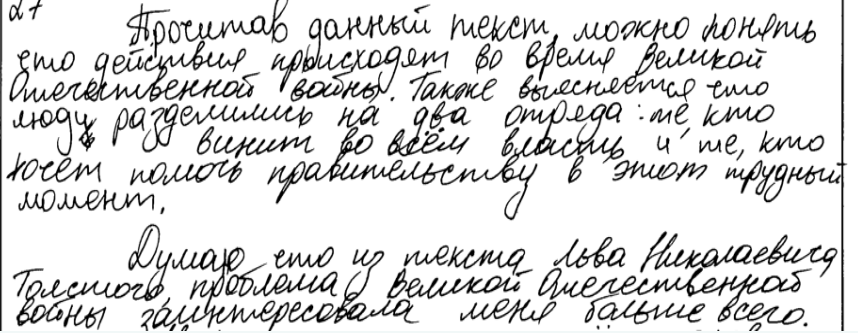 27
Прочитав данный текст, можно понять
что действия происходят во время Великой
Отечественной войны. Также выясняется что
люди разделились на два отряда: те, кто
винит во всём власть и те, кто
хочет помочь правительству в этот трудный
момент.
Думаю что из текста Льва Николаевича
Толстого, проблема Великой Отечественной
войны заинтересовала меня больше всего.